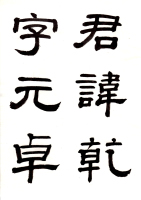 君諱乹
字元卓